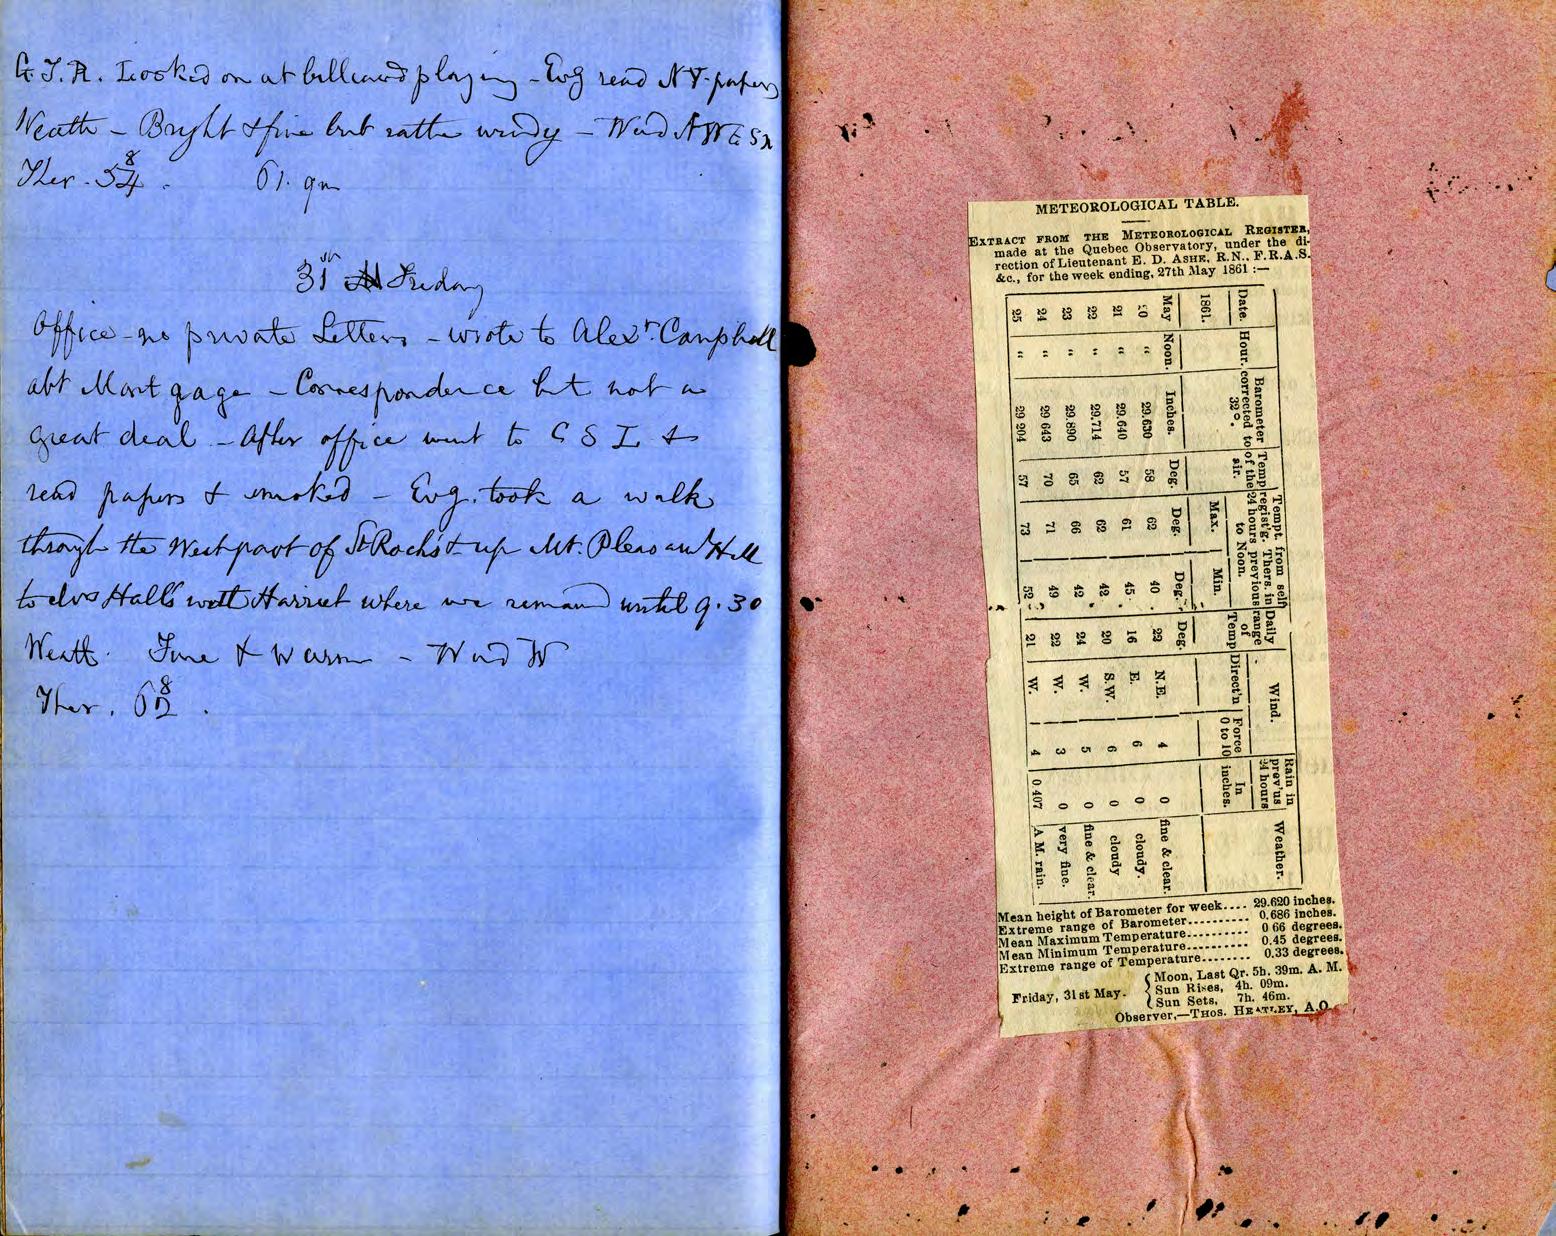 G.T.R. Looked on at billiard playing - Evg read N Y. papers
Weath - Bright & fine but rather windy - Wind NW &
Ther. 54 8 . 61. 9 pm
31st Friday
Office - no private Letters - wrote to Alexr. Campbell
abt Mortgage - Correspondence but not a
great deal - After office went to G S L &
read papers & smoked - Evg. took a walk
through the West part of St Rochs & up Mt. Pleasant Hill
to Halls with Harriet where we remand until 9.30
Weath. Fine & Warm - Wind W
Ther. 62 8 .
METEOROLOGICAL TABLE.
EXTRACT FROM THE METEOROLOGICAL REGISTER,
made at the Quebec Observatory, under the di-
rection of Lieutenant E. D. ASHE, R.N., F.R.A.S.
&c., for the week ending, 27th May 1861 :—
Date. Hour. Barometer corrected to 32°. Temp of the air. Tempt. from self regist'g. Thers. in 24 hours previous to Noon. Daily range of Temp Wind. Rain in prev'us 24 hours Weather.
1861. Max. Min. Direct'n Force 0 to 10 In inches.
May Noon. Inches. Deg. Deg. Deg. Deg.
20 “ 29.630 58 62 40 22 N.E. 4 0 fine & clear.
21 “ 29.640 57 61 45 16 E. 6 0 cloudy.
22 “ 29.714 62 62 42 20 S.W. 6 0 cloudy
23 “ 29.890 65 66 42 24 W. 5 0 fine & clear.
24 “ 29 643 70 71 49 22 W. 3 0 very fine.
25 “ 29 204 57 73 52 21 W. 4 0 407 A M. rain.
Mean height of Barometer for week.... 29.620 inches.
Extreme range of Barometer.......... 0.686 inches.
Mean Maximum Temperature.......... 0 66 degrees.
Mean Minimum Temperature.......... 0.45 degrees.
Extreme range of Temperature........ 0.33 degrees.
Friday, 31st May. { Moon, Last Qr. 5h. 39m. A. M.
Sun Rises, 4h. 09m.
Sun Sets, 7h. 46m.
Observer,—THOS. HEATLEY, A.O.